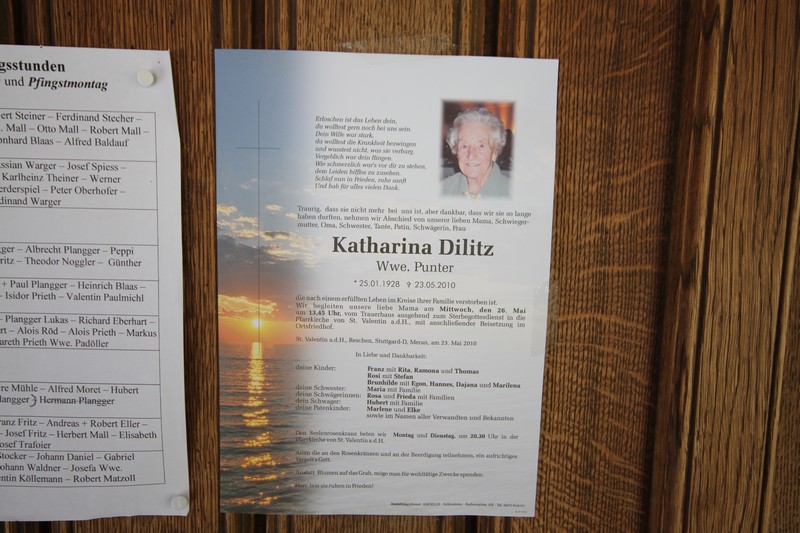 gsstunden
und Pfingstmontag
ert Steiner – Ferdinand Stecher –
. Mall – Otto Mall – Robert Mall –
onhard Blaas – Alfred Baldauf
ssian Warger – Josef Spiess –
Karlheinz Theiner – Werner
erderspiel – Peter Oberhofer –
dinand Warger
ger – Albrecht Plangger – Peppi
ritz – Theodor Noggler – Günther
+ Paul Plangger – Heinrich Blaas –
- Isidor Prieth – Valentin Paulmichl
- Plangger Lukas – Richard Eberhart –
rt – Alois Röd – Alois Prieth – Markus
areth Prieth Wwe. Padöller
re Mühle – Alfred Moret – Hubert
langger – Hermann Plangger
ranz Fritz – Andreas + Robert Eller –
- Josef Fritz – Herbert Mall – Elisabeth
osef Trafoier
Stocker – Johann Daniel – Gabriel
ohann Waldner – Josefa Wwe.
entin Köllemann – Robert Matzoll
Erloschen ist das Leben dein,
du wolltest gern noch bei uns sein.
Dein Wille war stark,
du wolltest die Krankheit bezwingen
und wusstest nicht, was sie verbarg.
Vergeblich war dein Ringen.
Wie schmerzlich war's vor dir zu stehen,
dem Leiden hilflos zu zusehen.
Schlaf nun in Frieden, ruhe sanft
Und hab für alles vielen Dank.
Traurig, dass sie nicht mehr bei uns ist, aber dankbar, dass wir sie so lange
haben durften, nehmen wir Abschied von unserer lieben Mama, Schwieger-
mutter, Oma, Schwester, Tante, Patin, Schwägerin, Frau
Katharina Dilitz
Wwe. Punter
* 25.01.1928 ✞ 23.05.2010
die nach einem erfüllten Leben im Kreise ihrer Familie verstorben ist.
Wir begleiten unsere liebe Mama am Mittwoch, den 26. Mai
um 13.45 Uhr, vom Trauerhaus ausgehend zum Sterbegottesdienst in die
Pfarrkirche von St. Valentin a.d.H., mit anschließender Beisetzung im
Ortsfriedhof.
St. Valentin a.d.H., Reschen, Stuttgard-D, Meran, am 23. Mai 2010
In Liebe und Dankbarkeit:
deine Kinder: Franz mit Rita, Ramona und Thomas
Rosi mit Stefan
Brunhilde mit Egon, Hannes, Dajana und Marilena
deine Schwester: Maria mit Familie
deine Schwägerinnen: Rosa und Frieda mit Familien
dein Schwager: Hubert mit Familie
deine Patenkinder: Marlene und Elke
sowie im Namen aller Verwandten und Bekannten
Den Seelenrosenkranz beten wir Montag und Dienstag, um 20,30 Uhr in der
Pfarrkirche von St. Valentin a.d.H.
Allen die an den Rosenkränzen und an der Beerdigung teilnehmen, ein aufrichtiges
Vergelt's Gott.
Anstatt Blumen auf das Grab, möge man für wohltätige Zwecke spenden.
Herr, lass sie ruhen in Frieden!